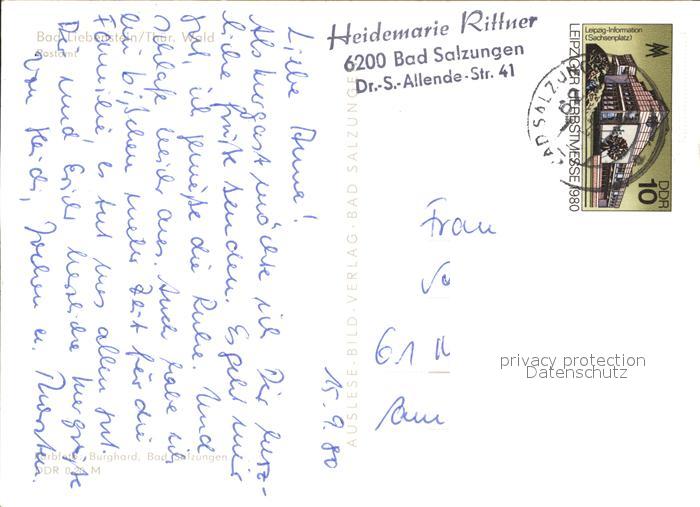 Bad Liebenstein/Thür. Wald
Postamt
Heidemarie Rittner
6200 Bad Salzungen
Dr.-S.-Allende-Str. 41
Leipzig-Information
(Sachsenplatz)
LEIPZIGER HERBSTMESSE 1980
DDR
10
BAD SALZUNGEN
15.9.80
Liebe Anna!
Als Kurgast möchte ich Dir herz-
liche Grüße senden. Es geht mir
gut, ich genieße die Ruhe. Und
schlafe wieder aus. Auch habe ich
ein bißchen mehr Zeit für die
Familie, es tut uns allen gut.
Dir und Erich herzliche Kurgrüße
von Heidi, Jochen u. Thorsten.
AUSLESE-BILD-VERLAG · BAD SALZUNGEN
Frau
61
privacy protection
Datenschutz
Farbfoto: Burghard, Bad Salzungen
DDR 0,25 M